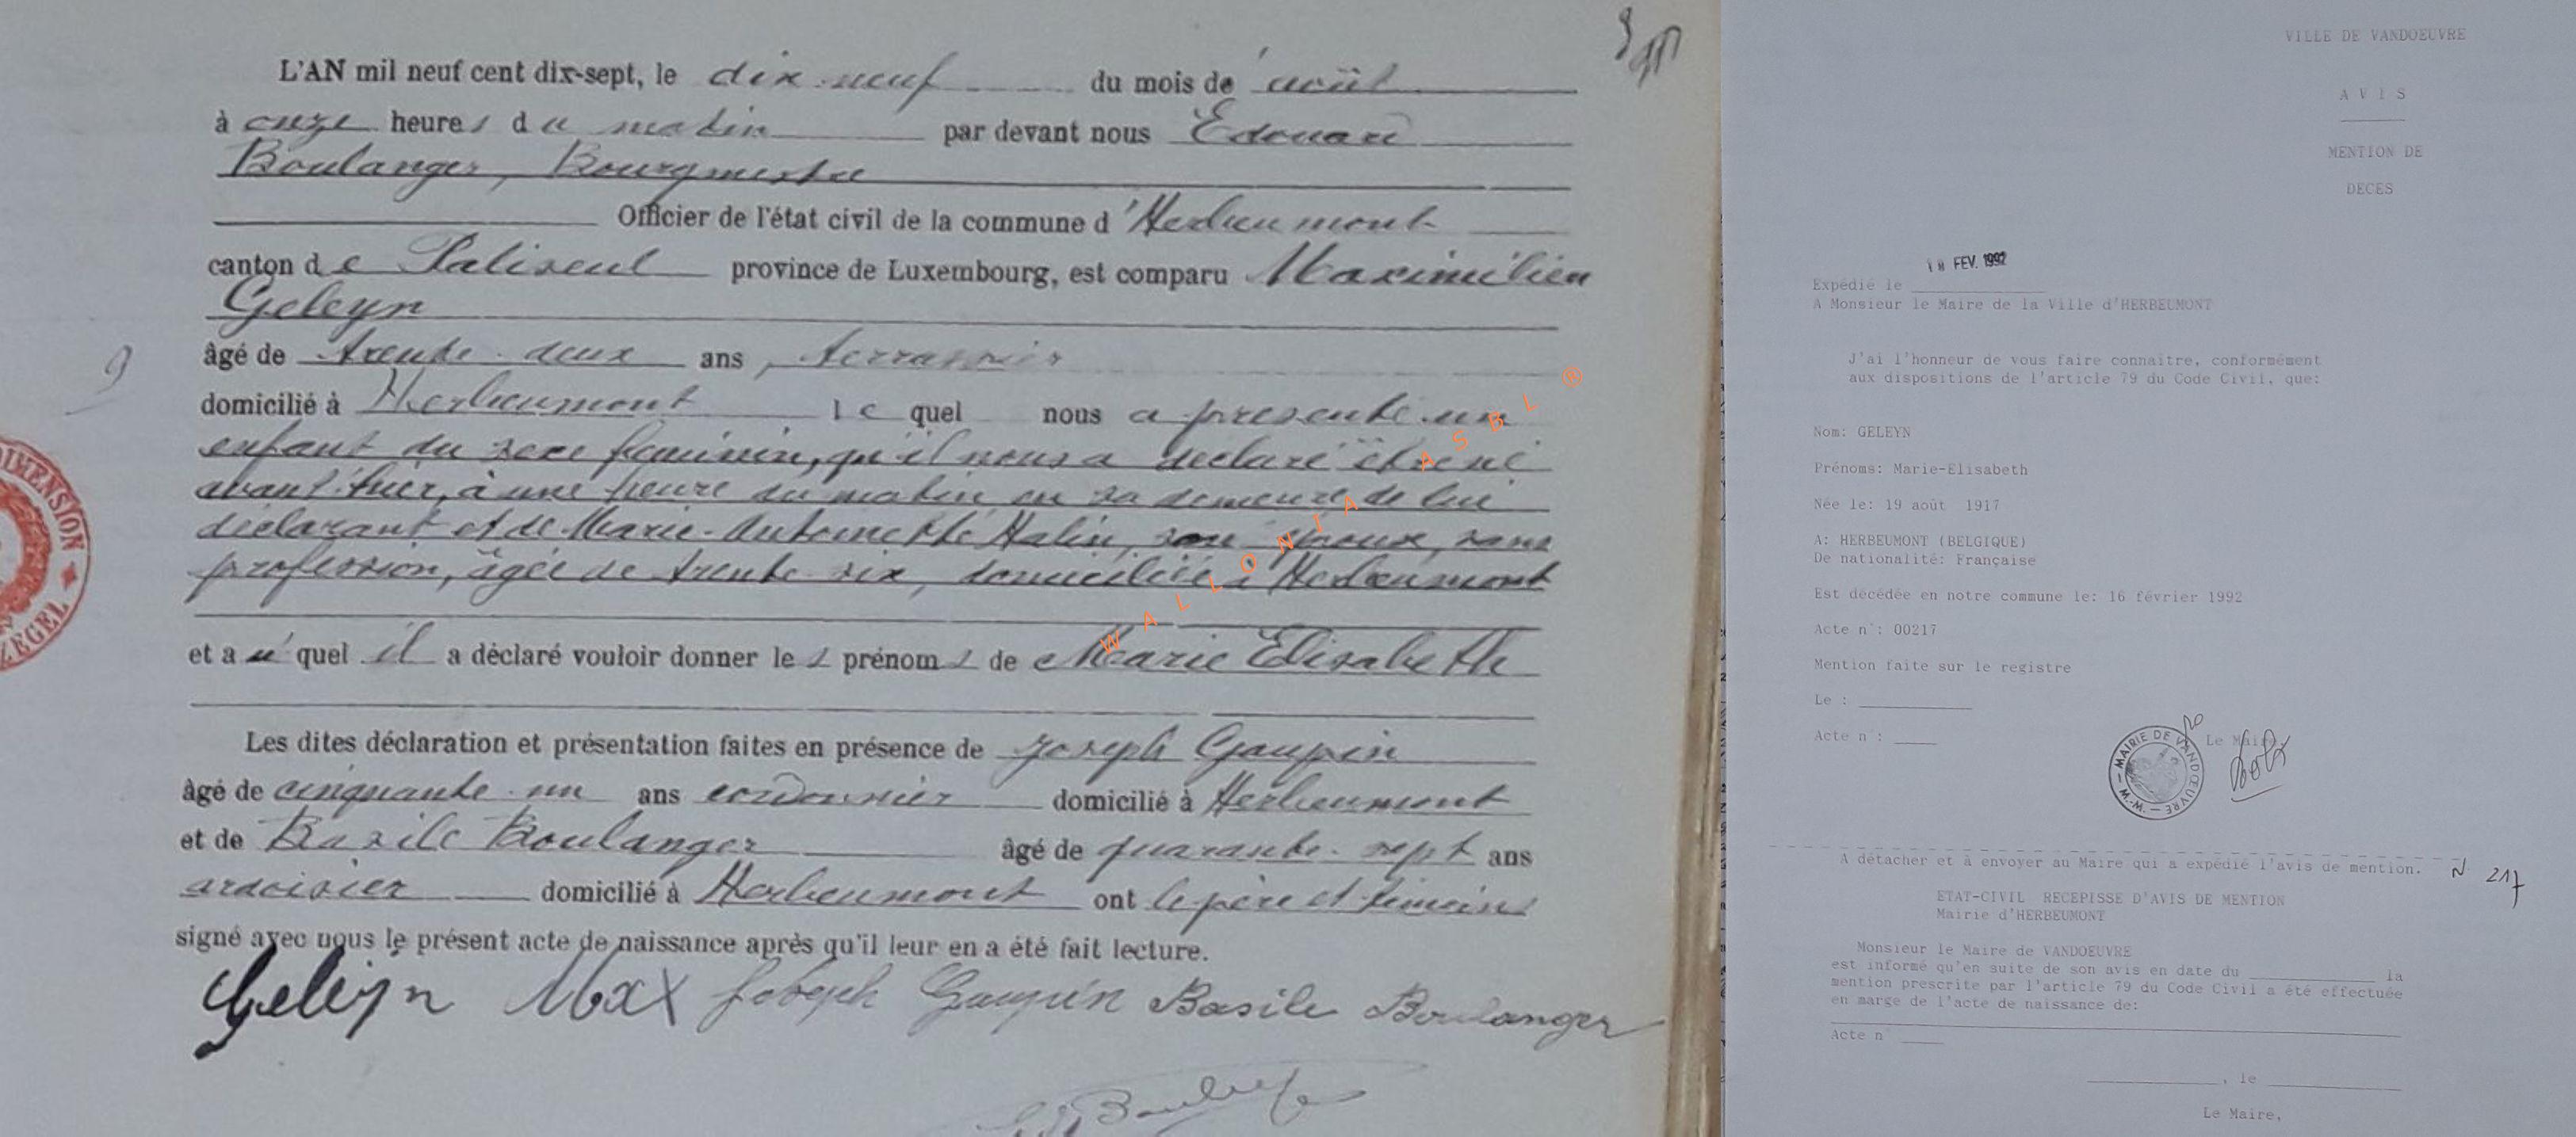 L'AN mil neuf cent dix-sept, le dix-neuf du mois de août
à onze heures du matin par devant nous Edouard
Boulanger, Bourgmestre
Officier de l'état civil de la commune d'Herbeumont
canton de Paliseul province de Luxembourg, est comparu Maximilien
Geleyn
9
âgé de trente-deux ans, terrassier
domicilié à Herbeumont lequel nous a présenté un
enfant du sexe féminin, qu'il nous a déclaré être né
avant-hier, à une heure du matin en sa demeure, de lui
déclarant et de Marie-Antoinette Halin, son épouse, sans
profession, âgée de trente-six, domiciliée à Herbeumont
et auquel il a déclaré vouloir donner les prénoms de Marie Elisabeth
Les dites déclaration et présentation faites en présence de Joseph Gaupin
âgé de cinquante-un ans cordonnier domicilié à Herbeumont
et de Basile Boulanger âgé de quarante-sept ans
ardoisier domicilié à Herbeumont ont le père et témoins
signé avec nous le présent acte de naissance après qu'il leur en a été fait lecture.
Geleyn Max Joseph Gaupin Basile Boulanger
DIMENSION
ZEGEL
WALLONIA ASBL ®
VILLE DE VANDOEUVRE
AVIS
MENTION DE
DECES
18 FEV. 1992
Expédié le
A Monsieur le Maire de la Ville d'HERBEUMONT
J'ai l'honneur de vous faire connaître, conformément
aux dispositions de l'article 79 du Code Civil, que:
Nom: GELEYN
Prénoms: Marie-Elisabeth
Née le: 19 août 1917
A: HERBEUMONT (BELGIQUE)
De nationalité: Française
Est décédée en notre commune le: 16 février 1992
Acte n°: 00217
Mention faite sur le registre
Le :
Acte n°:
Le Maire
MAIRIE DE VANDOEUVRE - M.-M. -
A détacher et à envoyer au Maire qui a expédié l'avis de mention.
N 217
ETAT-CIVIL RECEPISSE D'AVIS DE MENTION
Mairie d'HERBEUMONT
Monsieur le Maire de VANDOEUVRE
est informé qu'en suite de son avis en date du la
mention prescrite par l'article 79 du Code Civil a été effectuée
en marge de l'acte de naissance de:
Acte n°
, le
Le Maire,